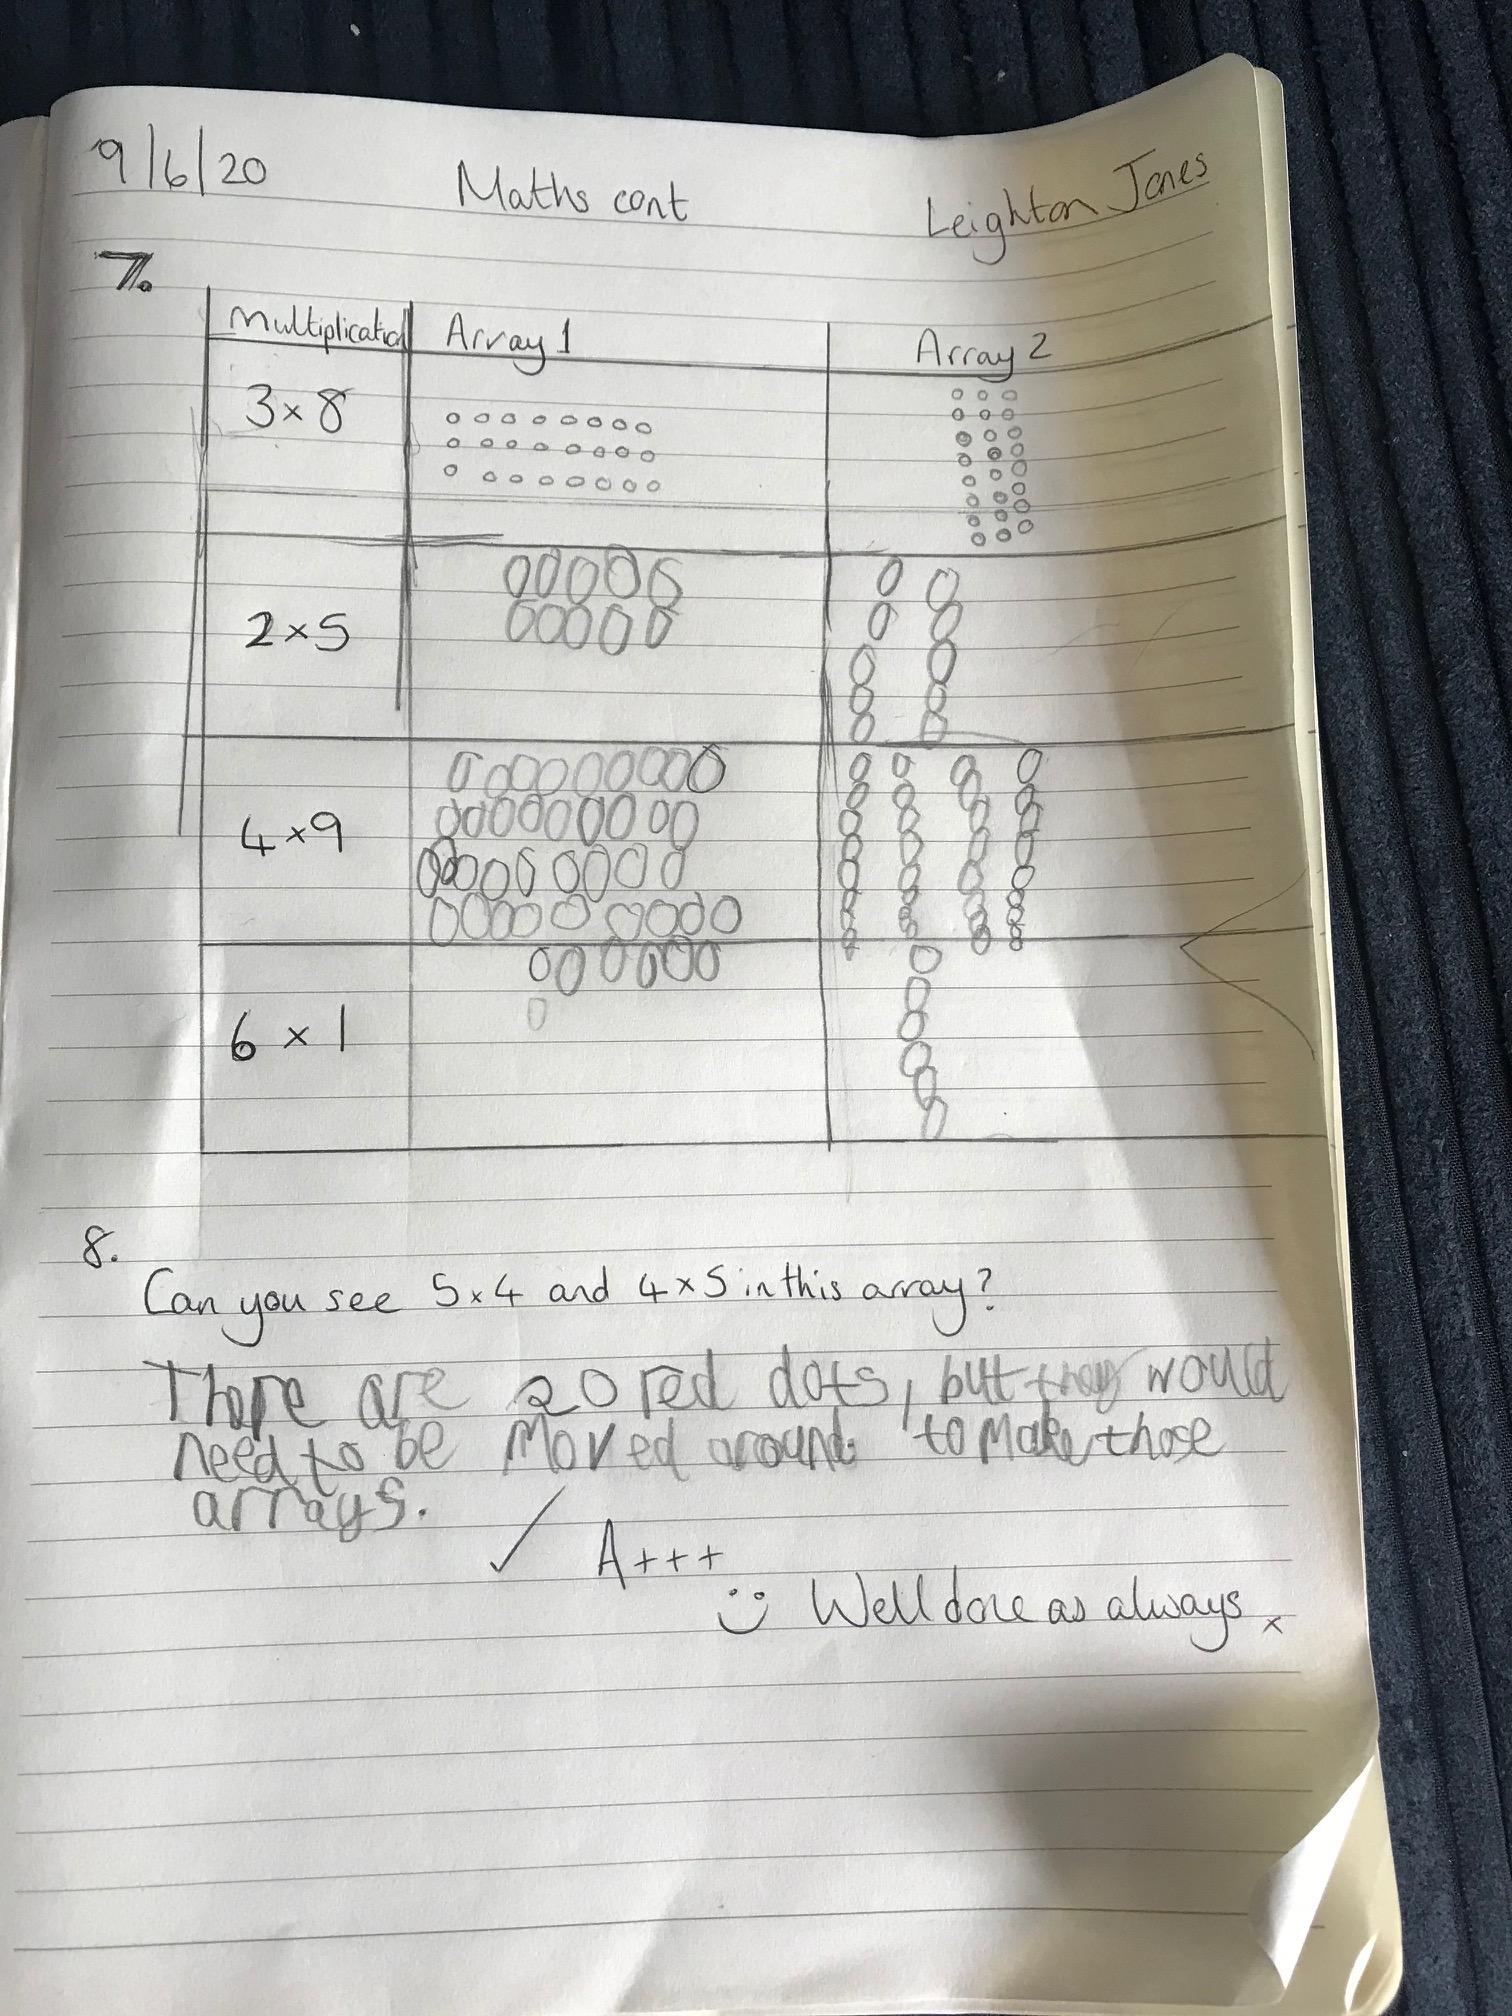 9/6/20 Maths cont Leighton Jones
7.
Multiplication Array 1 Array 2
3 x 8
2 x 5
4 x 9
6 x 1
8.
Can you see 5x4 and 4x5 in this array?
There are 20 red dots, but they would
need to be moved around to make those
arrays.
✓ A+++
Well done as always x